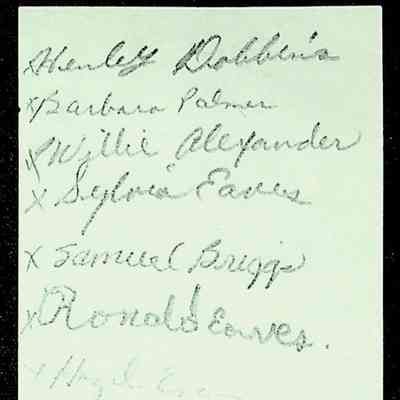 x Henley Dobbins
x Barbara Palmer
x Willie Alexander
x Sylvia Eaves
x Samuel Briggs
x Ronald Eaves.
x